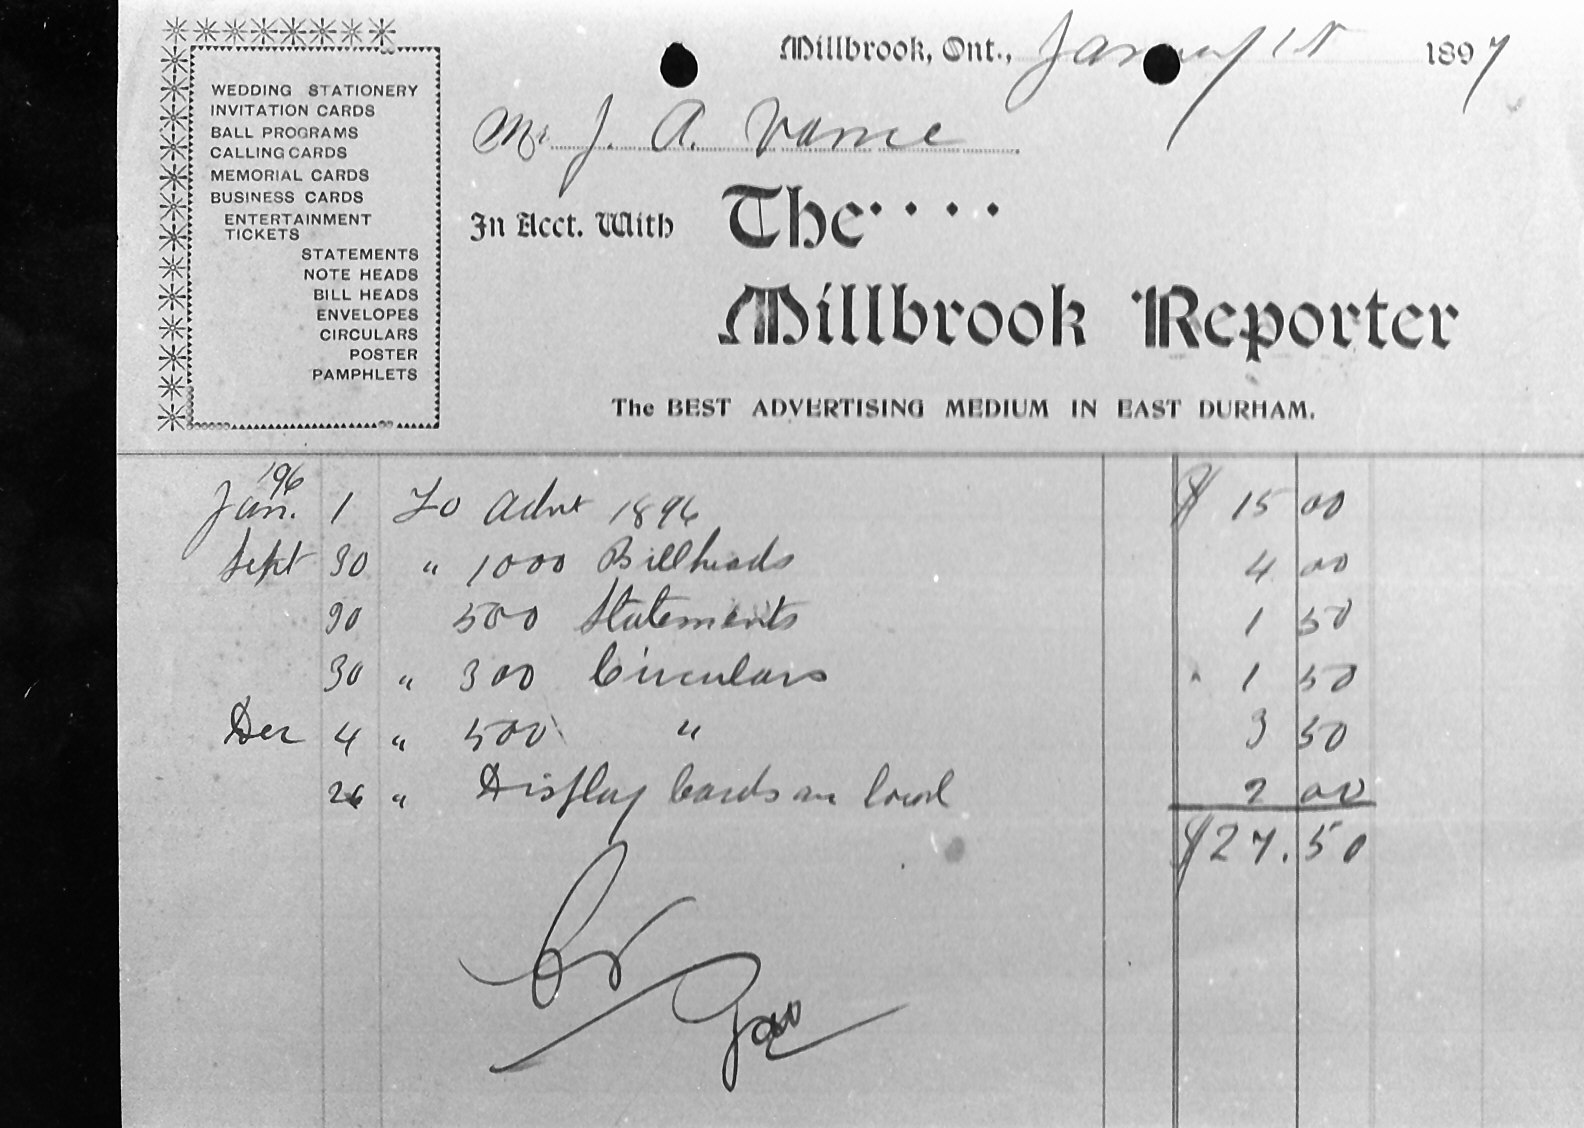 WEDDING STATIONERY
INVITATION CARDS
BALL PROGRAMS
CALLING CARDS
MEMORIAL CARDS
BUSINESS CARDS
ENTERTAINMENT
TICKETS
STATEMENTS
NOTE HEADS
BILL HEADS
ENVELOPES
CIRCULARS
POSTER
PAMPHLETS
Millbrook, Ont., January 1st 1897
Mr. J. A. Vance
In Acct. With The....
Millbrook Reporter
The BEST ADVERTISING MEDIUM IN EAST DURHAM.
'96
Jan. 1 To Advt 1896 $ 15 00
Sept 30 " 1000 Billheads 4 00
30 500 Statements 1 50
30 " 300 Circulars 1 50
Dec 4 " 500 " 3 50
26 " Display Cards in local 2 00
$27.50